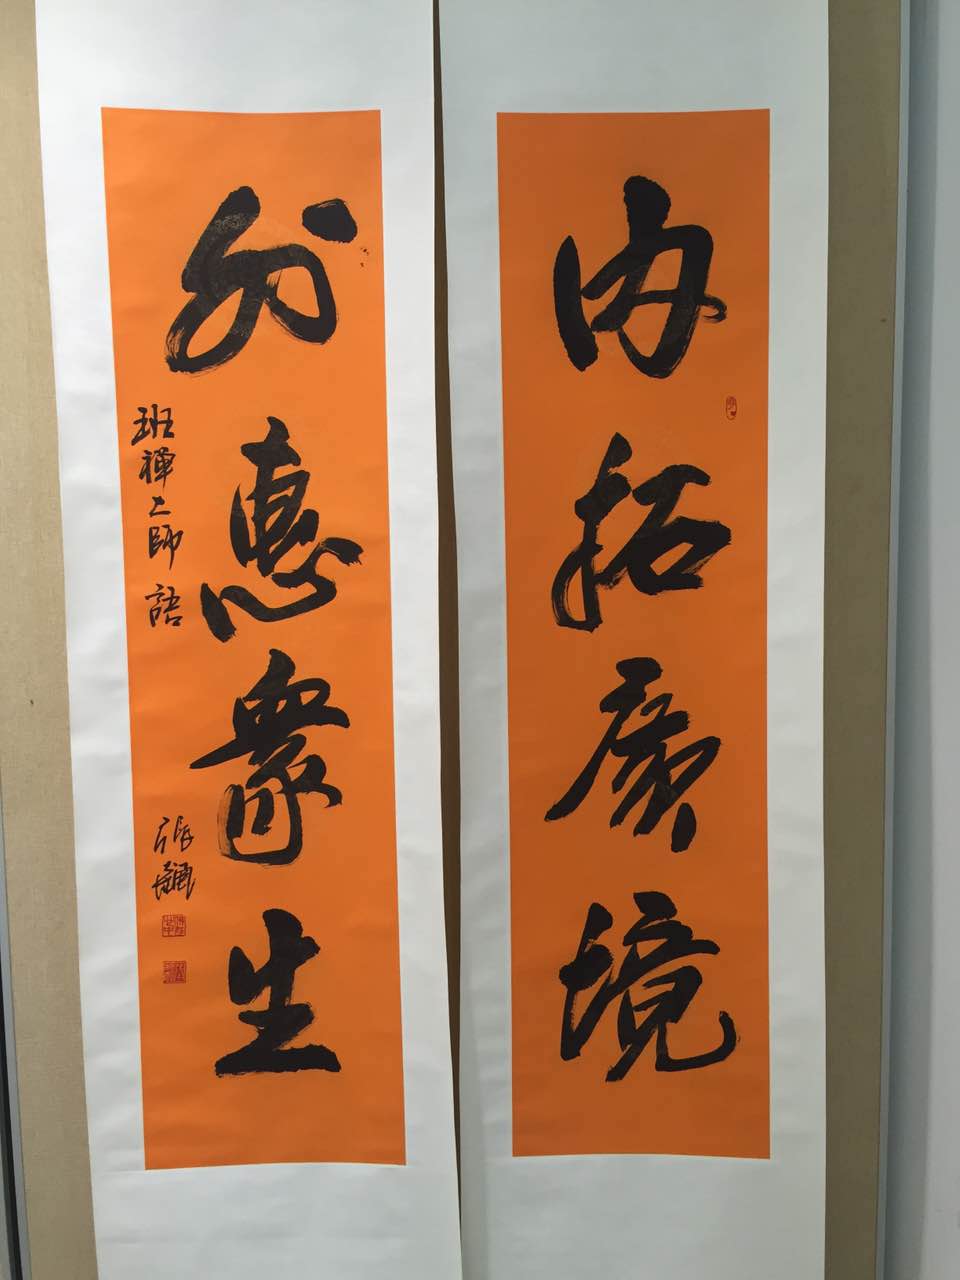 内拓廣境
外惠衆生
班禅上師語
張繼